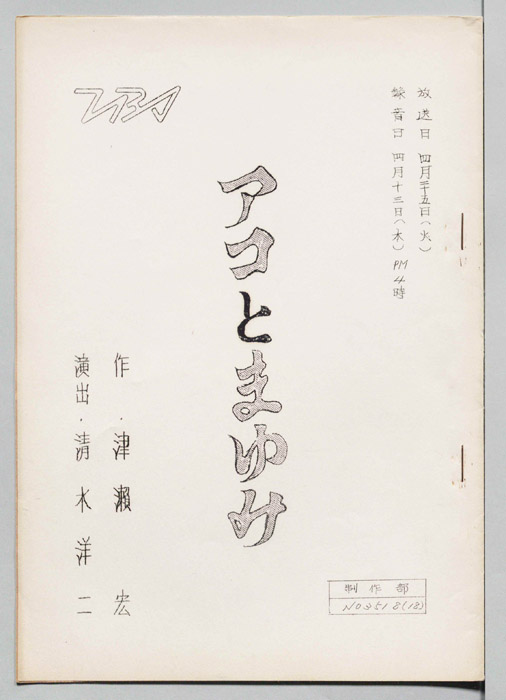 放送日 四月二十五日(火)
録音日 四月十三日(木) PM4時
アコとまゆみ
作・津瀬宏
演出・清水洋二
制作部